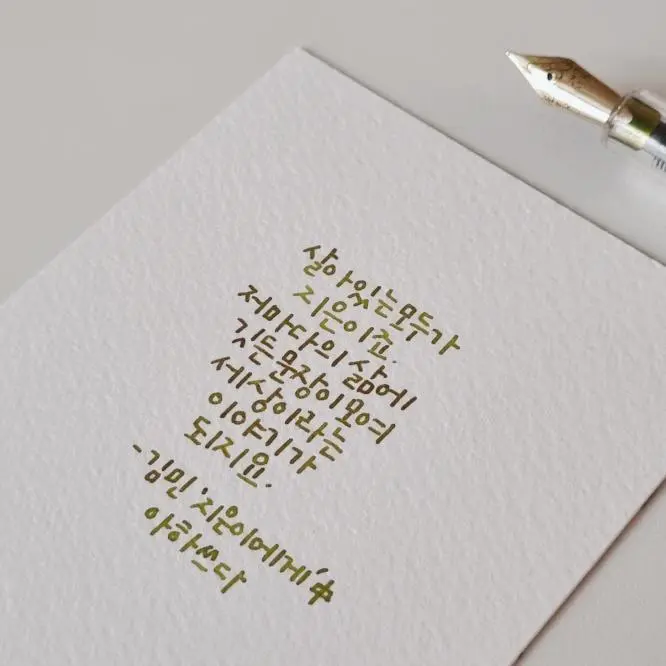 살아있는 모두가
지은이죠.
저마다의 삶에
깃든 문장이 모여
세상이라는
이야기가
되지요.
-김민, '지은이에게' 中
아하쓰다